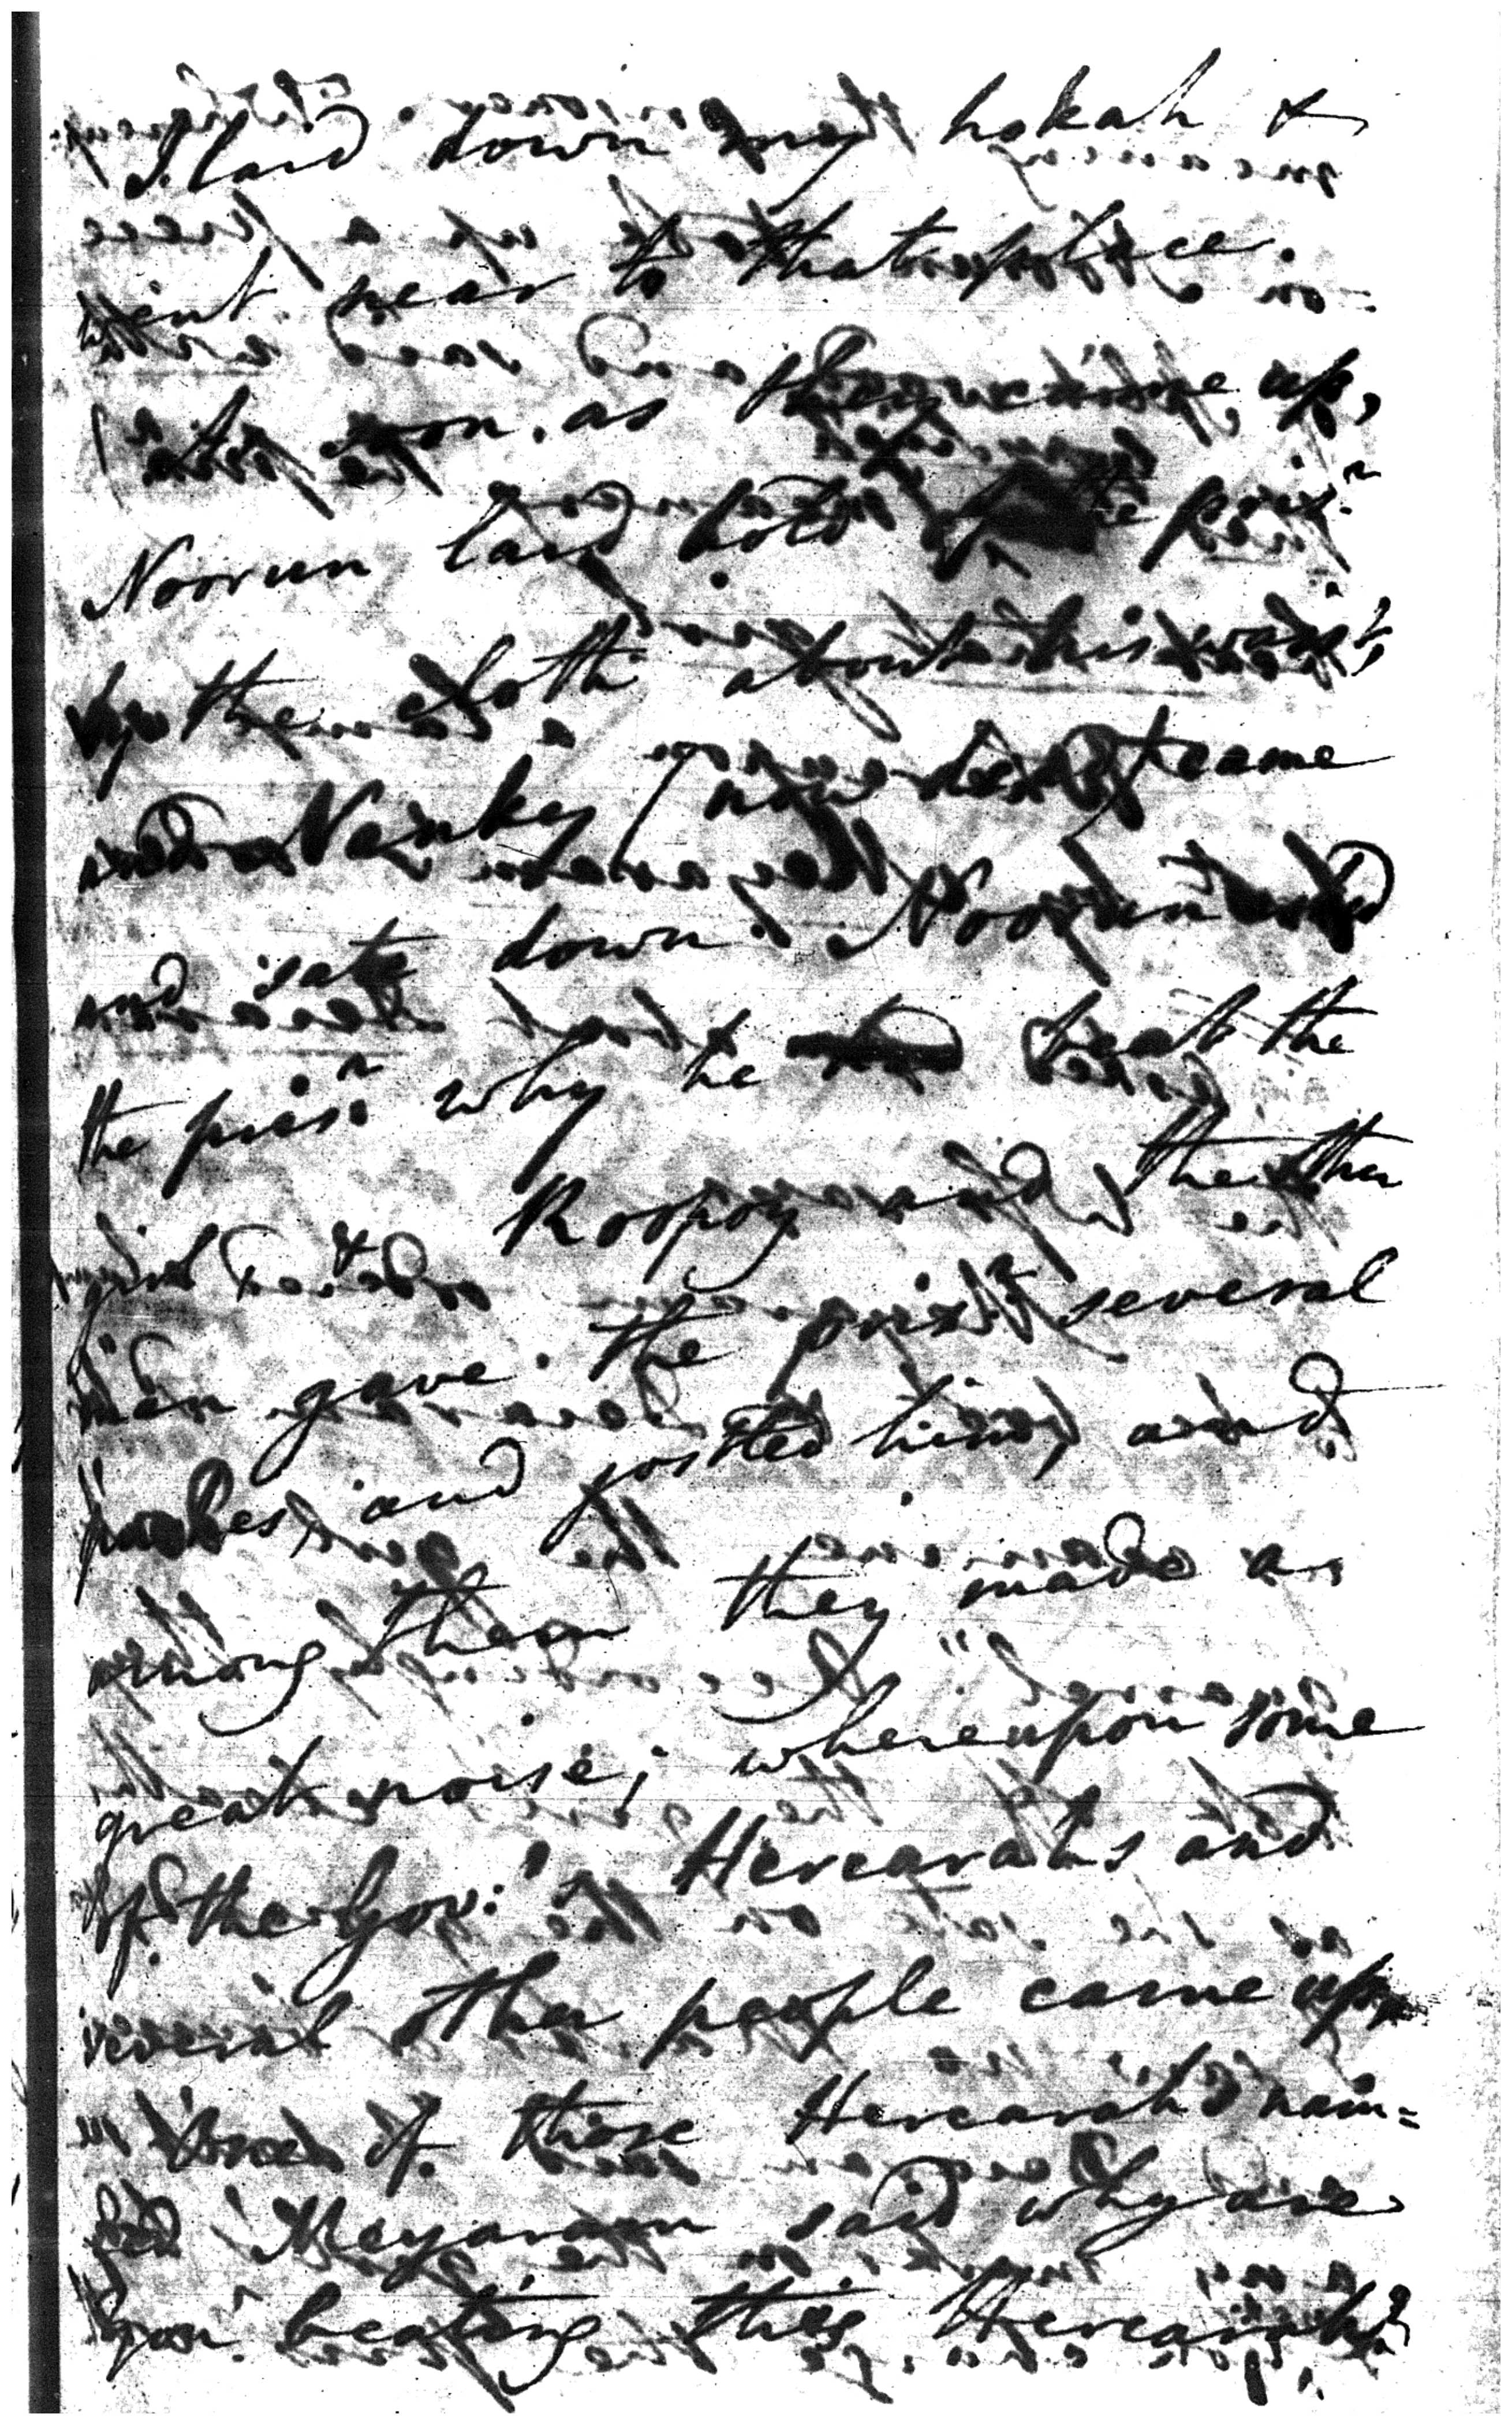 I laid down my hokah &
went near to that place.
As soon as they came up,
Noorun laid hold of the prisr
by the cloth about his waist,
and Nanky (now dead) came
and sate down. Noorun
the prisr why he beat the
girl Roopoy and the other
men gave the prisr several
pushes, and jostled him, and
among them they made a
great noise; whereupon some
of the Govr's Hercarahs and
several other people came up,
One of these Hercarahs nam=
ed Mayaram said why are
you beating this Hercarah?